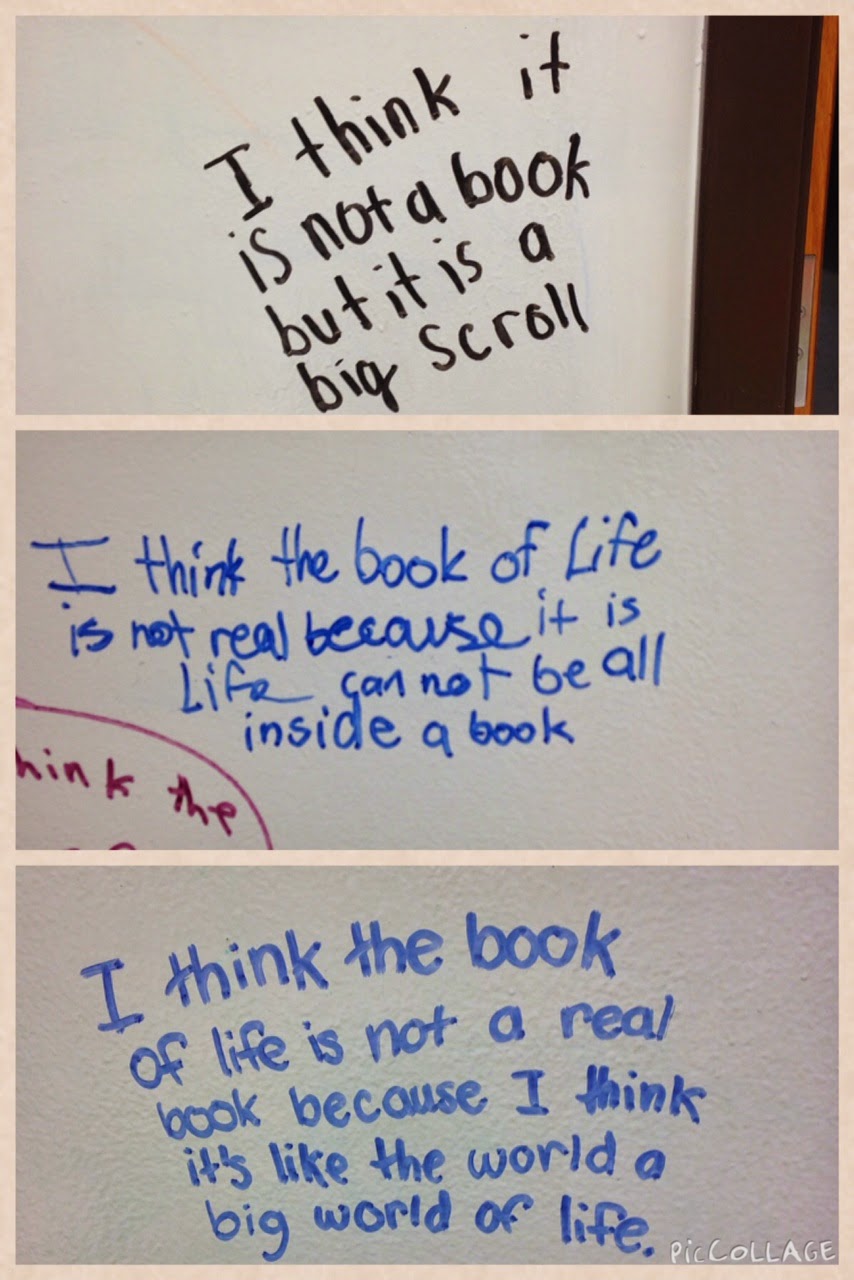 I think it
is not a book
but it is a
big scroll
I think the book of Life
is not real because it is
Life can not be all
inside a book
hink the
I think the book
of life is not a real
book because I think
it's like the world a
big world of life.
PicCOLLAGE